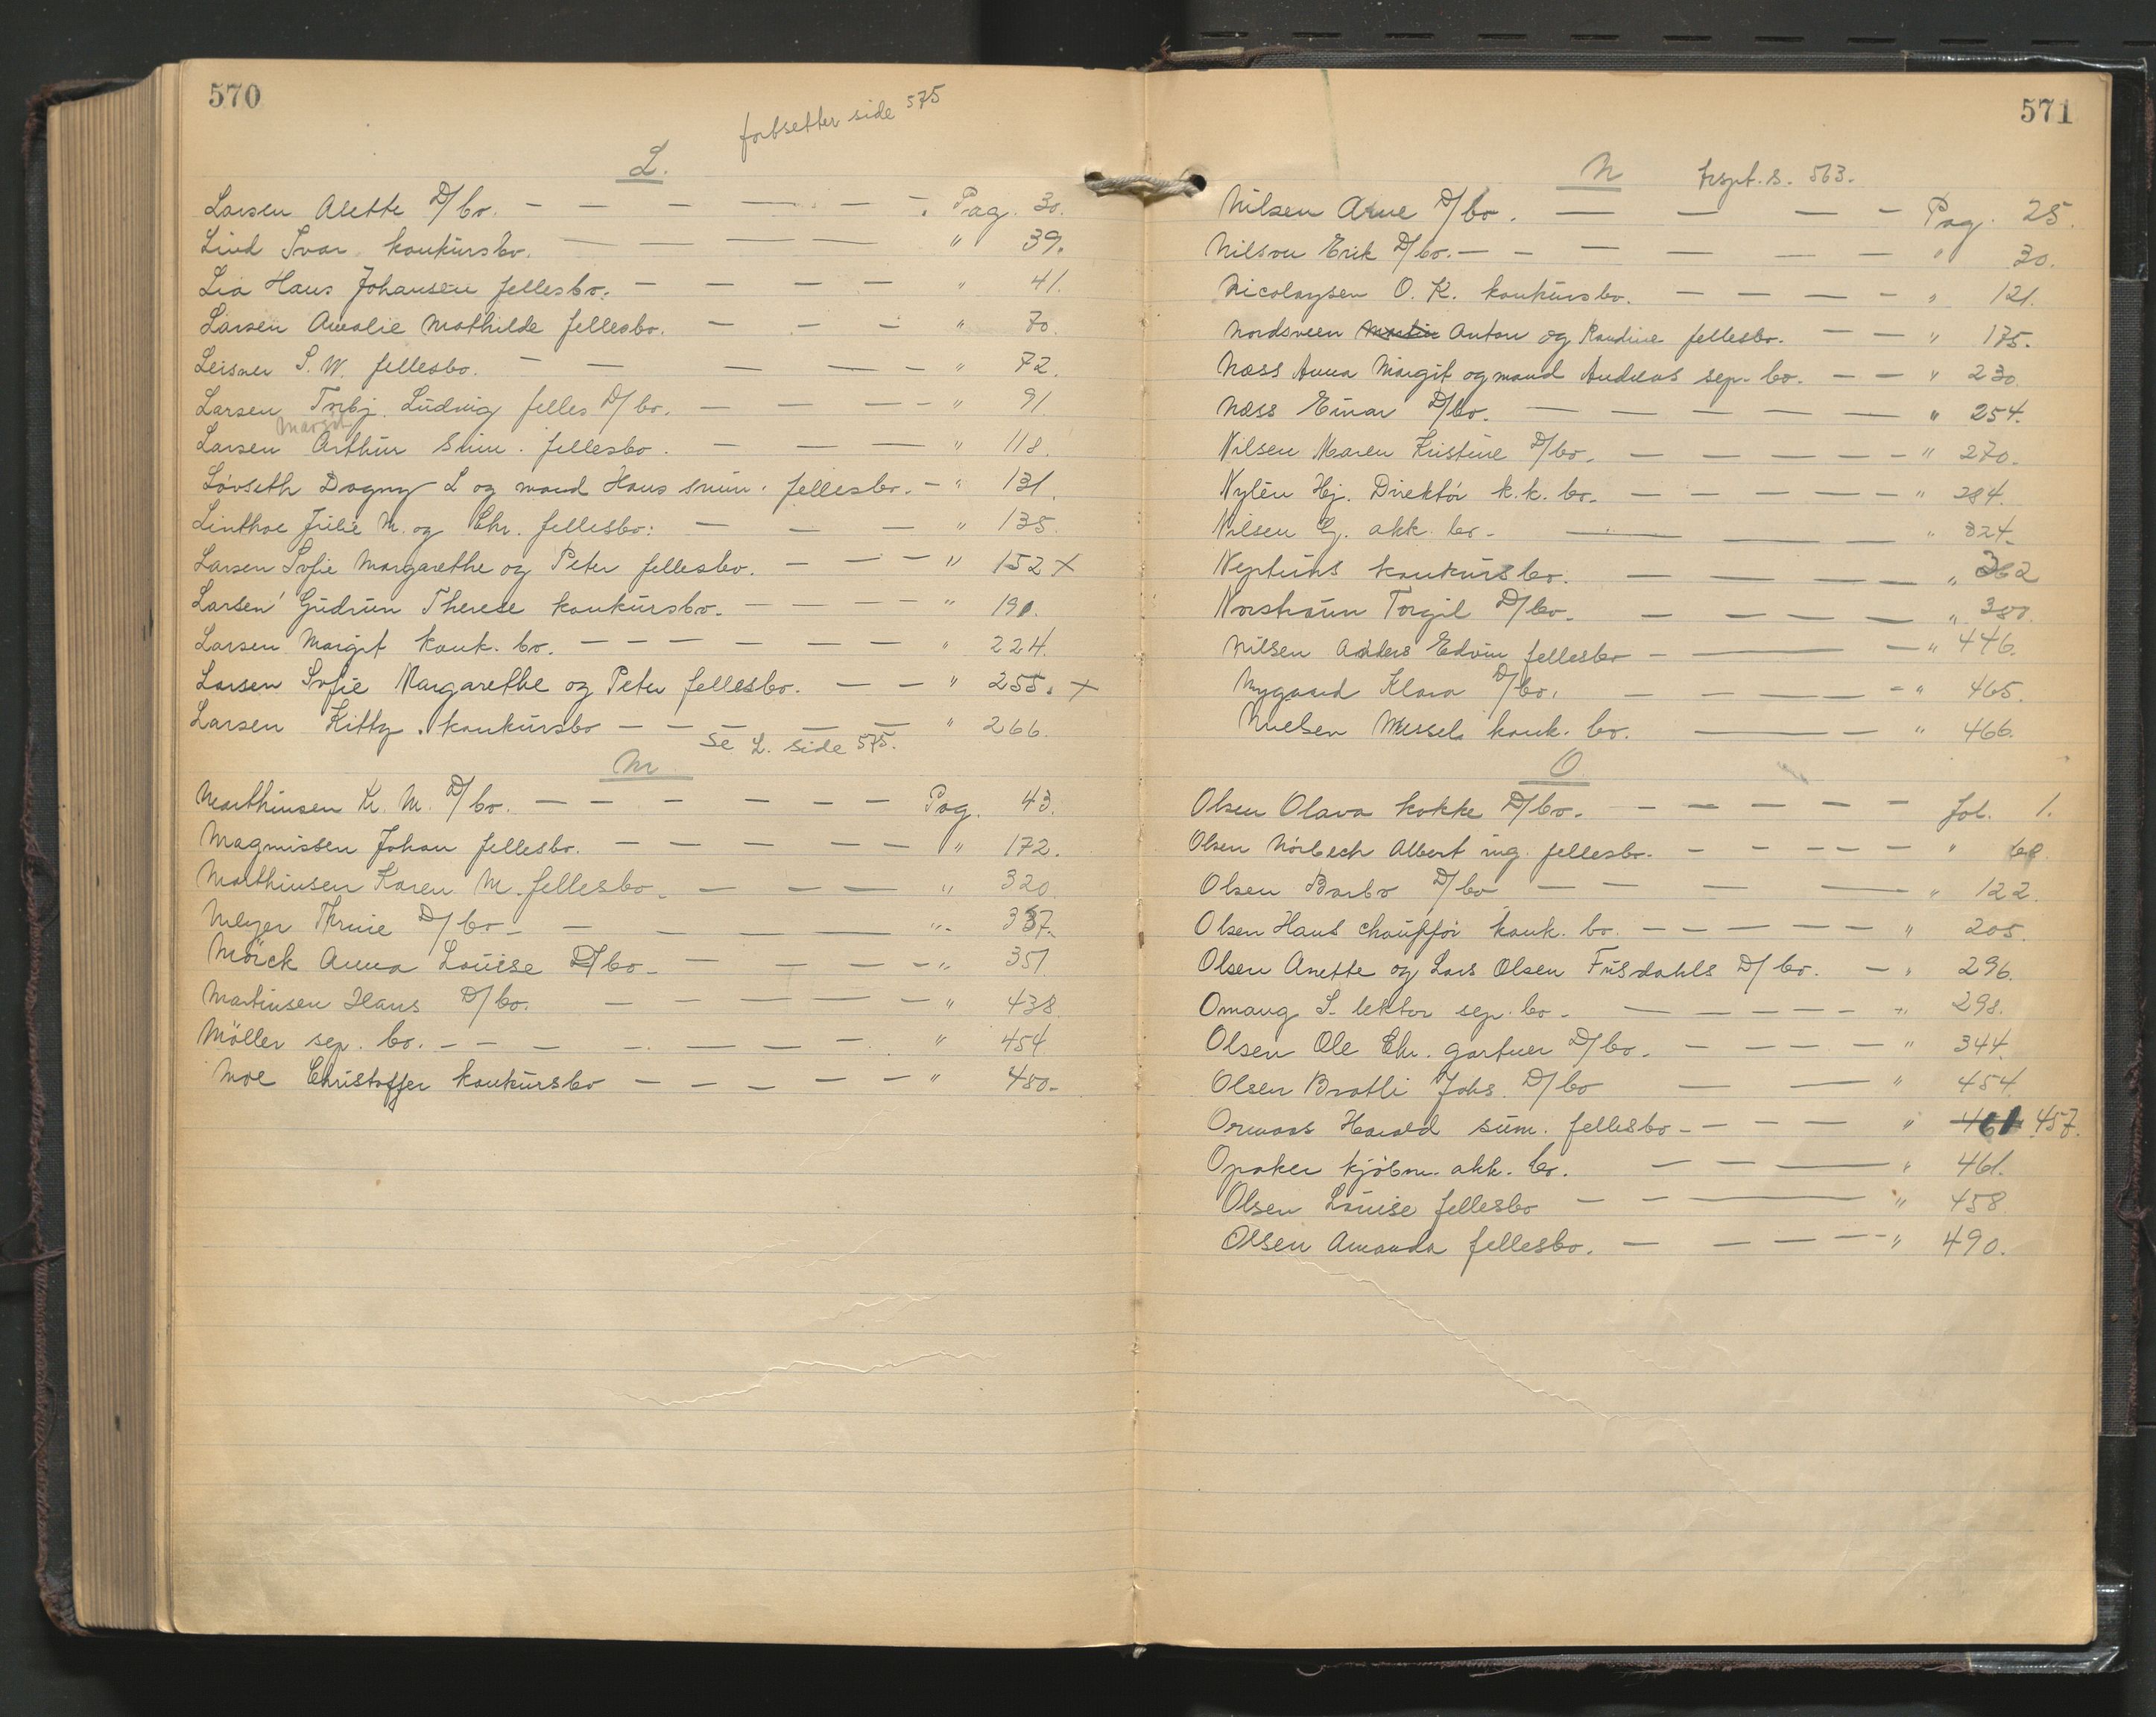 570
fortsetter side 575
L.
Larsen Alette D/bo. — — — — — — Pag. 30.
Lind Ivar konkursbo. — — — — " 39.
Lia Hans Johansen fellesbo. — — — — " 41.
Larsen Amalie Mathilde fellesbo. — — — " 70.
Leisner S. W. fellesbo. — — — — — " 72.
Larsen Torbj. Ludvig felles D/bo. — — — — " 91.
Margit
Larsen Arthur sum. fellesbo. — — — " 118.
Løvseth Dagny L og mand Hans sum. fellesbo. — " 131.
Linthoe Julie M. og Chr. fellesbo: — — — " 135.
Larsen Sofie Margarethe og Peter fellesbo. — — — " 152 x
Larsen Gudrun Therese konkursbo. — — — — " 191.
Larsen Margit konk. bo. — — — — — — " 224.
Larsen Sofie Margarethe og Peter fellesbo. — — " 255. x
Larsen Kitty konkursbo — — — — — " 266.
se L. side 575.
M.
Marthinsen Kr. M. D/bo. — — — — — — Pag. 43.
Magnussen Johan fellesbo. — — — — — — " 172.
Mathinsen Karen M. fellesbo. — — — " 320.
Meyer Thrine D/bo — — — — " 337.
Mörck Anna Louise D/bo — — — — — " 351.
Martinsen Hans D/bo. — — — — — " 438.
Möller sep. bo. — — — — — — — " 454
Moe Christoffer konkursbo — — — — — " 480.
571
N trspt. s. 563.
Nilsen Arne D/bo. — — — — Pag. 25.
Nilsen Erik D/bo. — — — — — — " 30.
Nicolaysen O. K. konkursbo. — — — — " 121.
Nordsveen Martin Anton og Randine fellesbo. — — " 175.
Næss Anna Margit og mand Andreas sep. bo. — — " 230.
Næss Einar D/bo. — — — — — " 254.
Nilsen Maren Kristine D/bo. — — — — — " 270.
Nylén Hj. Direktör k.k. bo. — — — — — " 284.
Nilsen G. akk. bo. — — — " 324.
Neptuns konkursbo. — — — — " 362
Norshaun Torgil D/bo. — — — — " 380.
Nilsen Anders Edvin fellesbo — — — " 446.
Nygaard Klara D/bo. — — — — " 465.
Nielsen Wessel konk. bo. — — " 466.
O
Olsen Olava kokke D/bo. — — — — — fol. 1.
Olsen Nörbech Albert ing. fellesbo. — — — — — " 68.
Olsen Barbo D/bo — — — — " 122.
Olsen Hans chauffør konk. bo. — — — — — " 205.
Olsen Anette og Lars Olsen Fusdahls D/bo. — " 296.
Omang S. lektor sep. bo. — — — — — " 298.
Olsen Ole Chr. gartner D/bo. — — — — " 344.
Olsen Bratli Johs. D/bo — — " 454.
Ormaas Harald sum. fellesbo — — — — " 461 457.
Opaker kjøbm. akk. bo. — — — " 461.
Olsen Louise fellesbo — — — " 458.
Olsen Amanda fellesbo. — — — — " 490.